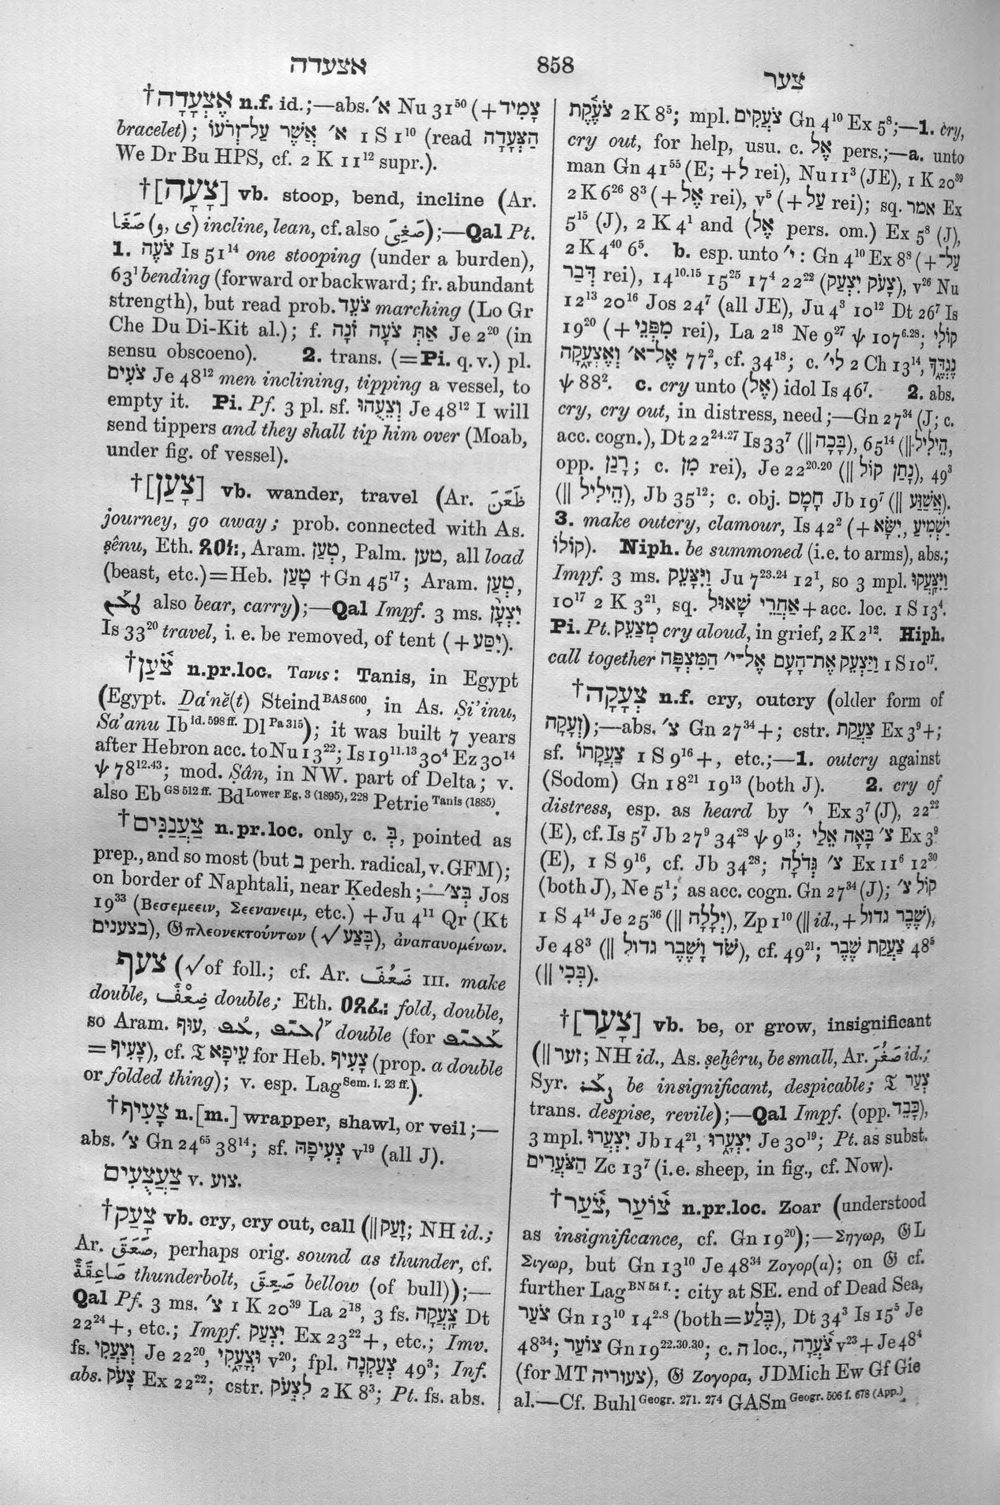 אצעדה
858
צער
†אֶצְעָדָה n.f. id.;—abs. א׳ Nu 31⁵⁰ (+צָמִיד
bracelet); א׳ אֲשֶׁר עַל־זְרֹעוֹ 1 S 1¹⁰ (read הַצְּעָדָה
We Dr Bu HPS, cf. 2 K 11¹² supr.).
†[צָעָה] vb. stoop, bend, incline (Ar.
صَغَا (و, ى) incline, lean, cf. also صَغِىَ);—Qal Pt.
1. צֹעֶה Is 51¹⁴ one stooping (under a burden),
63¹ bending (forward or backward; fr. abundant
strength), but read prob. צֹעֵד marching (Lo Gr
Che Du Di-Kit al.); f. אַתְּ צֹעָה זֹנָה Je 2²⁰ (in
sensu obscoeno). 2. trans. (=Pi. q.v.) pl.
צֹעִים Je 48¹² men inclining, tipping a vessel, to
empty it. Pi. Pf. 3 pl. sf. וְצֵעֻהוּ Je 48¹² I will
send tippers and they shall tip him over (Moab,
under fig. of vessel).
†[צָעַן] vb. wander, travel (Ar. ظَعَنَ
journey, go away; prob. connected with As.
ṣênu, Eth. ጸዐነ:, Aram. טְעַן, Palm. טען, all load
(beast, etc.)=Heb. טָעַן †Gn 45¹⁷; Aram. טְעַן,
ܛܥܢ also bear, carry);—Qal Impf. 3 ms. יִצְעָן
Is 33²⁰ travel, i. e. be removed, of tent (+יִסַּע).
†צֹעַן n.pr.loc. Τανις: Tanis, in Egypt
(Egypt. Ḏaʿnĕ(t) Steind BAS 600, in As. Ṣiʾinu,
Ṣaʾanu Ib id. 598 ff. Dl Pa 315); it was built 7 years
after Hebron acc. to Nu 13²²; Is 19¹¹·¹³ 30⁴ Ez 30¹⁴
ψ 78¹²·⁴³; mod. Ṣân, in NW. part of Delta; v.
also Eb GS 512 ff. Bd Lower Eg. 3 (1895), 228 Petrie Tanis (1885).
†צַעֲנַנִּים n.pr.loc. only c. בְּ, pointed as
prep., and so most (but ב perh. radical, v. GFM);
on border of Naphtali, near Ḳedesh;—בְּצ׳ Jos
19³³ (Βεσεμεειν, Σεενανειμ, etc.) + Ju 4¹¹ Qr (Kt
בצענים), 𝔊 πλεονεκτούντων (√בָּצַע), ἀναπαυομένων.
צעף (√of foll.; cf. Ar. ضَعُفَ III. make
double, ضِعْفٌ double; Eth. ዐጸፈ: fold, double,
so Aram. עוּף, double (for
=צְעִיף), cf. 𝔗 עֵיפָא for Heb. צָעִיף (prop. a double
or folded thing); v. esp. Lag Sem. i. 23 ff.).
†צָעִיף n.[m.] wrapper, shawl, or veil;—
abs. צ׳ Gn 24⁶⁵ 38¹⁴; sf. צְעִיפָהּ v¹⁹ (all J).
צַעֲצֻעִים v. צוע.
†צָעַק vb. cry, cry out, call (‖זָעַק; NH id.;
Ar. صَعَقَ, perhaps orig. sound as thunder, cf.
صَاعِقَةٌ thunderbolt, صَعِقَ bellow (of bull));—
Qal Pf. 3 ms. צ׳ 1 K 20³⁹ La 2¹⁸, 3 fs. צָעֲקָה Dt
22²⁴+, etc.; Impf. יִצְעַק Ex 23²²+, etc.; Imv.
fs. וְצַעֲקִי Je 22²⁰, וּצְעָקִי v²⁰; fpl. צְעַקְנָה 49³; Inf.
abs. צָעֹק Ex 22²²; cstr. לִצְעֹק 2 K 8³; Pt. fs. abs.
צֹעֶקֶת 2 K 8⁵; mpl. צֹעֲקִים Gn 4¹⁰ Ex 5⁸;—1. cry,
cry out, for help, usu. c. אֶל pers.;—a. unto
man Gn 41⁵⁵ (E; +לְ rei), Nu 11³ (JE), 1 K 20³⁹
2 K 6²⁶ 8³ (+אֶל rei), v⁵ (+עַל rei); sq. אמר Ex
5¹⁵ (J), 2 K 4¹ and (אֶל pers. om.) Ex 5⁸ (J),
2 K 4⁴⁰ 6⁵. b. esp. unto י׳: Gn 4¹⁰ Ex 8⁸ (+עַל־
דְּבַר rei), 14¹⁰·¹⁵ 15²⁵ 17⁴ 22²² (צָעֹק יִצְעַק), v²⁶ Nu
12¹³ 20¹⁶ Jos 24⁷ (all JE), Ju 4³ 10¹² Dt 26⁷ Is
19²⁰ (+מִפְּנֵי rei), La 2¹⁸ Ne 9²⁷ ψ 107⁶·²⁸; קוֹלִי
אֶל־א׳ וְאֶצְעָקָה 77², cf. 34¹⁸; c. לי׳ 2 Ch 13¹⁴, נֶגְדֶּךָ
ψ 88². c. cry unto (אֶל) idol Is 46⁷. 2. abs.
cry, cry out, in distress, need;—Gn 27³⁴ (J; c.
acc. cogn.), Dt 22²⁴·²⁷ Is 33⁷ (‖בָּכָה), 65¹⁴ (‖הֵילִיל,
opp. רָנַן; c. מִן rei), Je 22²⁰·²⁰ (‖נָתַן קוֹל), 49³
(‖הֵילִיל), Jb 35¹²; c. obj. חָמָס Jb 19⁷ (‖אֲשַׁוַּע).
3. make outcry, clamour, Is 42² (+יִשָּׂא, יַשְׁמִיעַ
קוֹלוֹ). Niph. be summoned (i.e. to arms), abs.;
Impf. 3 ms. וַיִּצָּעֵק Ju 7²³·²⁴ 12¹, so 3 mpl. וַיִּצָּעֲקוּ
10¹⁷ 2 K 3²¹, sq. אַחֲרֵי שָׁאוּל + acc. loc. 1 S 13⁴.
Pi. Pt. מְצַעֵק cry aloud, in grief, 2 K 2¹². Hiph.
call together וַיַּצְעֵק אֶת־הָעָם אֶל־י׳ הַמִּצְפָּה 1 S 10¹⁷.
†צְעָקָה n.f. cry, outcry (older form of
זְעָקָה);—abs. צ׳ Gn 27³⁴+; cstr. צַעֲקַת Ex 3⁹+;
sf. צַעֲקָתוֹ 1 S 9¹⁶+, etc.;—1. outcry against
(Sodom) Gn 18²¹ 19¹³ (both J). 2. cry of
distress, esp. as heard by י׳ Ex 3⁷ (J), 22²²
(E), cf. Is 5⁷ Jb 27⁹ 34²⁸ ψ 9¹³; צ׳ בָּאָה אֵלַי Ex 3⁹
(E), 1 S 9¹⁶, cf. Jb 34²⁸; צ׳ גְּדֹלָה Ex 11⁶ 12³⁰
(both J), Ne 5¹; as acc. cogn. Gn 27³⁴ (J); קוֹל צ׳
1 S 4¹⁴ Je 25³⁶ (‖יְלָלָה), Zp 1¹⁰ (‖id., +שֶׁבֶר גדול),
Je 48³ (‖שֹׁד וָשֶׁבֶר גדול), cf. 49²¹; צַעֲקַת שֶׁבֶר 48⁵
(‖בְּכִי).
†[צָעַר] vb. be, or grow, insignificant
(‖זער; NH id., As. ṣeḫêru, be small, Ar. صَغُرَ id.;
Syr. ܨܥܪ be insignificant, despicable; 𝔗 צְעַר
trans. despise, revile);—Qal Impf. (opp. כָּבֵד),
3 mpl. יִצְעֲרוּ Jb 14²¹, יִצְעָרוּ Je 30¹⁹; Pt. as subst.
הַצֹּעֲרִים Zc 13⁷ (i.e. sheep, in fig., cf. Now).
†צֹעַר, צוֹעַר n.pr.loc. Zoar (understood
as insignificance, cf. Gn 19²⁰);—Σηγωρ, 𝔊L
Σιγωρ, but Gn 13¹⁰ Je 48³⁴ Ζογορ(α); on 𝔊 cf.
further Lag BN 54 f.: city at SE. end of Dead Sea,
צֹעַר Gn 13¹⁰ 14²·⁸ (both=בֶּלַע), Dt 34³ Is 15⁵ Je
48³⁴; צוֹעַר Gn 19²²·³⁰·³⁰; c. ה loc., צֹעֲרָה v²³ + Je 48⁴
(for MT צעוריה), 𝔊 Ζογορα, JDMich Ew Gf Gie
al.—Cf. Buhl Geogr. 271. 274 GASm Geogr. 506 f. 678 (App.).